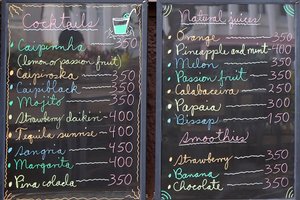 Cocktails
Caipirinha 350
(lemon or passion fruit)
Caipiroska 350
Caipiblack 350
Mojito 350
Strawberry daikiri 400
Tequila sunrise 400
Sangria 450
Margarita 400
Pina colada 350
Natural juices
Orange 350
Pineapple and mint 400
Melon 350
Passion fruit 350
Calabaceira 250
Papaia 300
Bissap 150
Smoothies
Strawberry 350
Banana 350
Chocolate 350